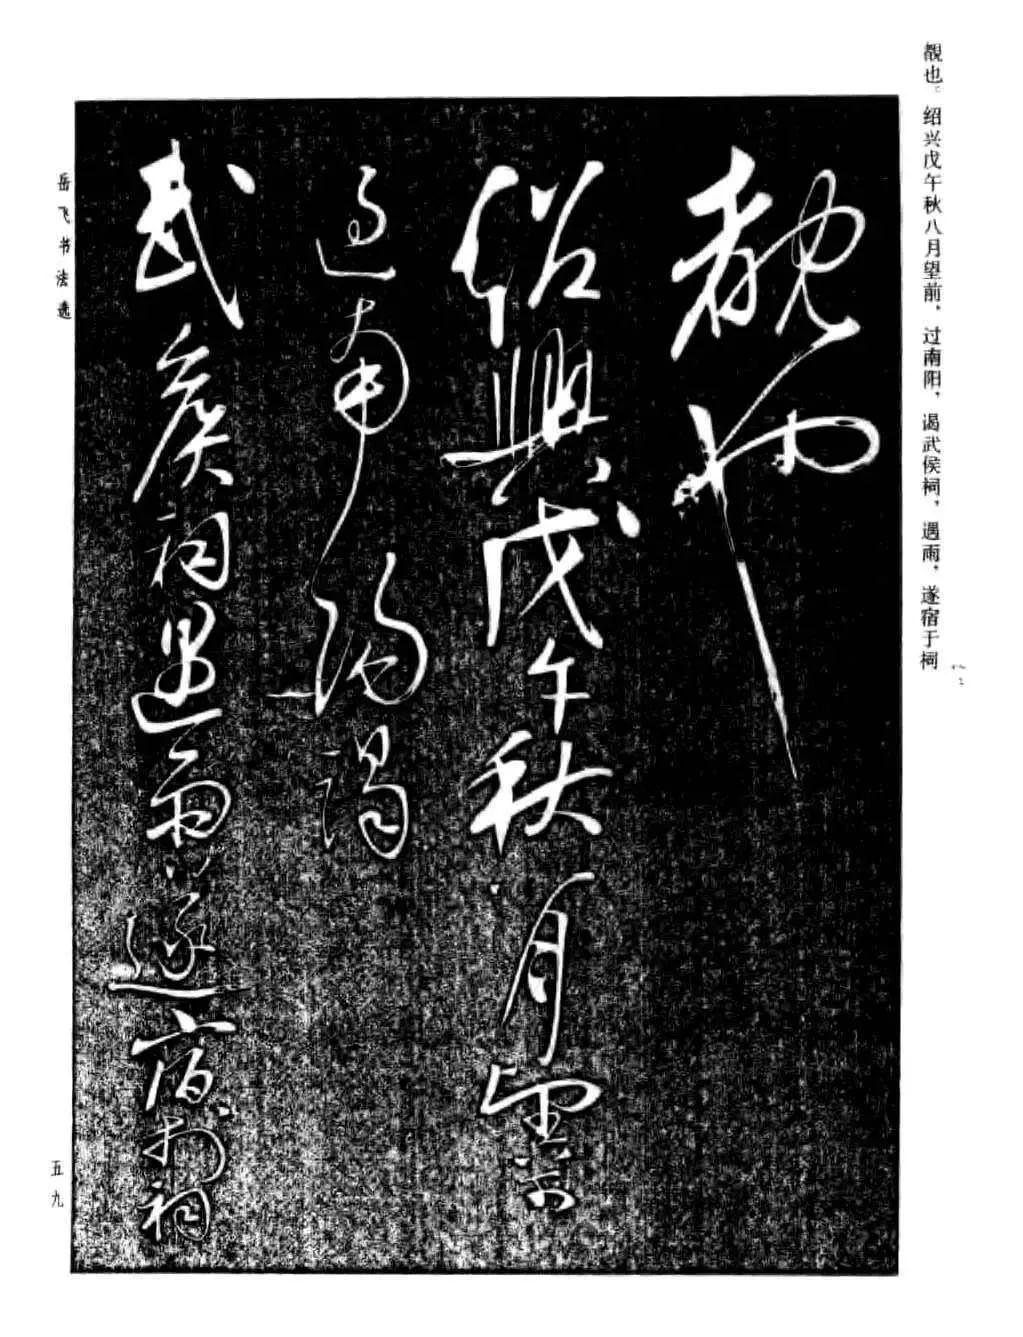 覩也。绍兴戊午秋八月望前，过南阳，谒武侯祠，遇雨，遂宿于祠
覩也
紹興戊午秋八月望前
過南陽謁
武侯祠遇雨遂宿於祠
岳飞书法选
五九